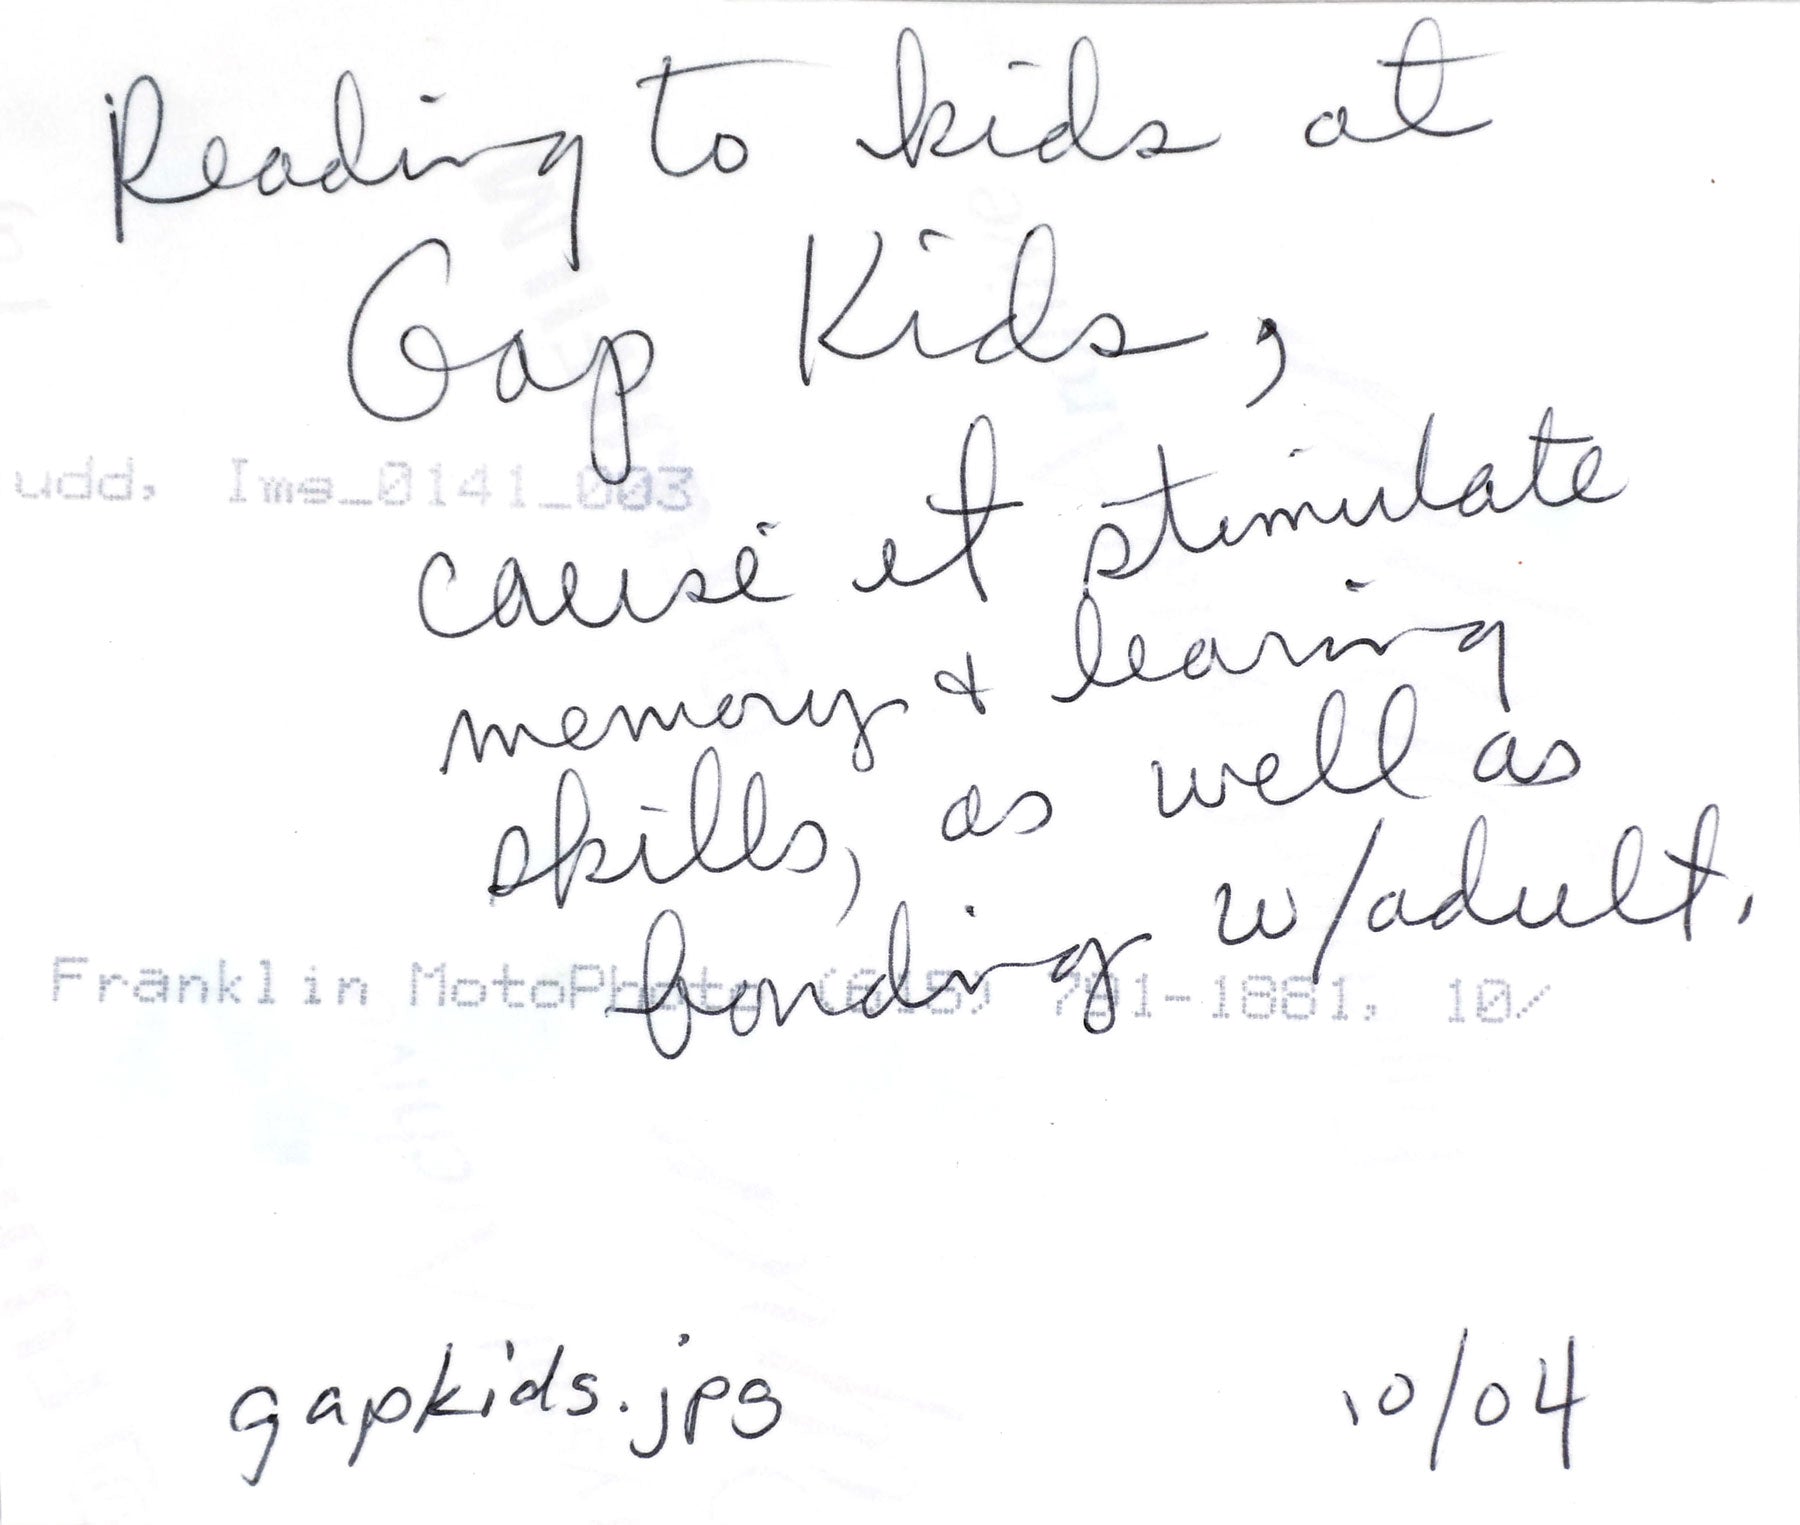 Reading to kids at
Gap Kids,
udd, Img_0141_003
cause it stimulate
memory & learing
skills, as well as
bonding w/adult.
Franklin MotoPhoto (615) 791-1881, 10/
gapkids.jpg
10/04